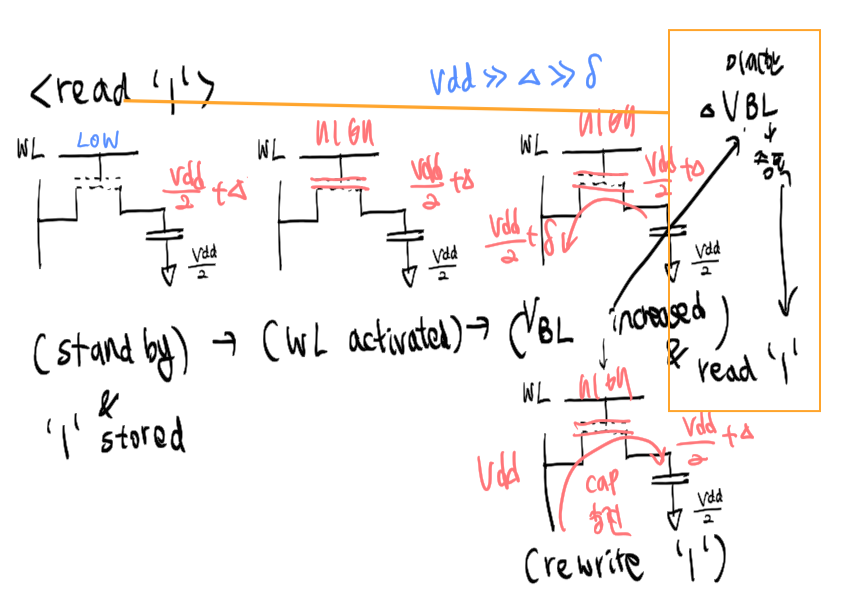 <read '1'>
Vdd ≫ Δ ≫ δ
WL LOW
Vdd/2 + Δ
Vdd/2
WL HIGH
Vdd/2 + Δ
Vdd/2
WL HIGH
Vdd/2 + Δ
Vdd/2 + δ
Vdd/2
미약한
ΔVBL
↓
증폭
↓
read '1'
(stand by) → (WL activated) → (VBL increased) &
&
'1' stored
↓
WL HIGH
Vdd/2 + Δ
Vdd
cap
충전
Vdd/2
(rewrite '1')